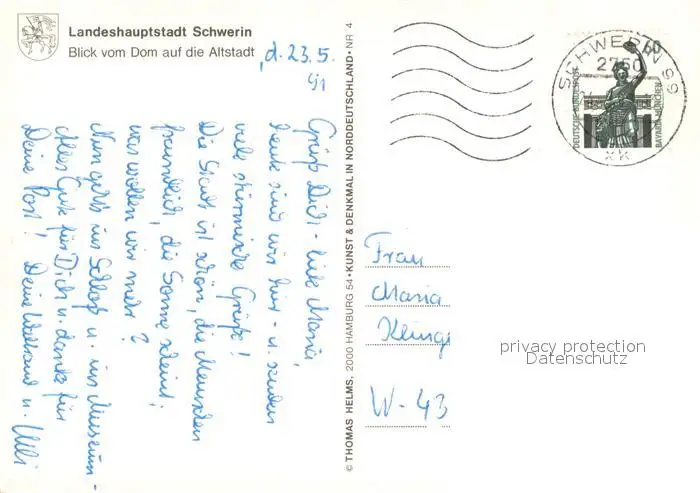 Landeshauptstadt Schwerin
Blick vom Dom auf die Altstadt
, d. 23.5.
91
Grüß Dich - liebe Maria,
heute sind wir hier - u. senden
viele stürmische Grüße!
Die Stadt ist schön, die Menschen
freundlich, die Sonne scheint,
was wollen wir mehr?
Nun geht's ins Schloß u. ins Museum -
Alles Gute für Dich u. danke für
Deine Post! Deine u. Uli
© THOMAS HELMS, 2000 HAMBURG 54 • KUNST & DENKMAL IN NORDDEUTSCHLAND • NR. 4
SCHWERIN 99
2750
xk
60
DEUTSCHE BUNDESPOST
BAVARIA MÜNCHEN
Frau
Maria
W-43
privacy protection
Datenschutz